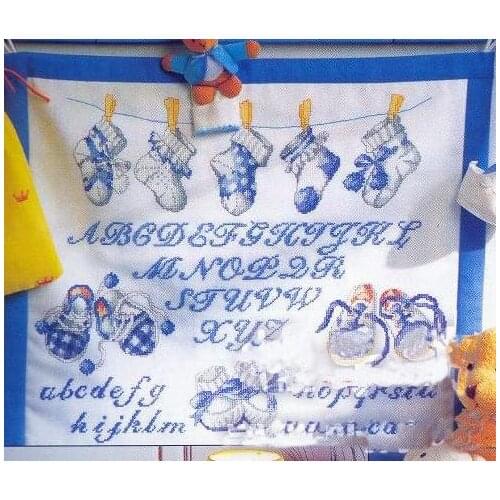 ABCDEFGHIJKL
MNOPQR
STUVW
XYZ
abcdefg nopqrstu
hijklm